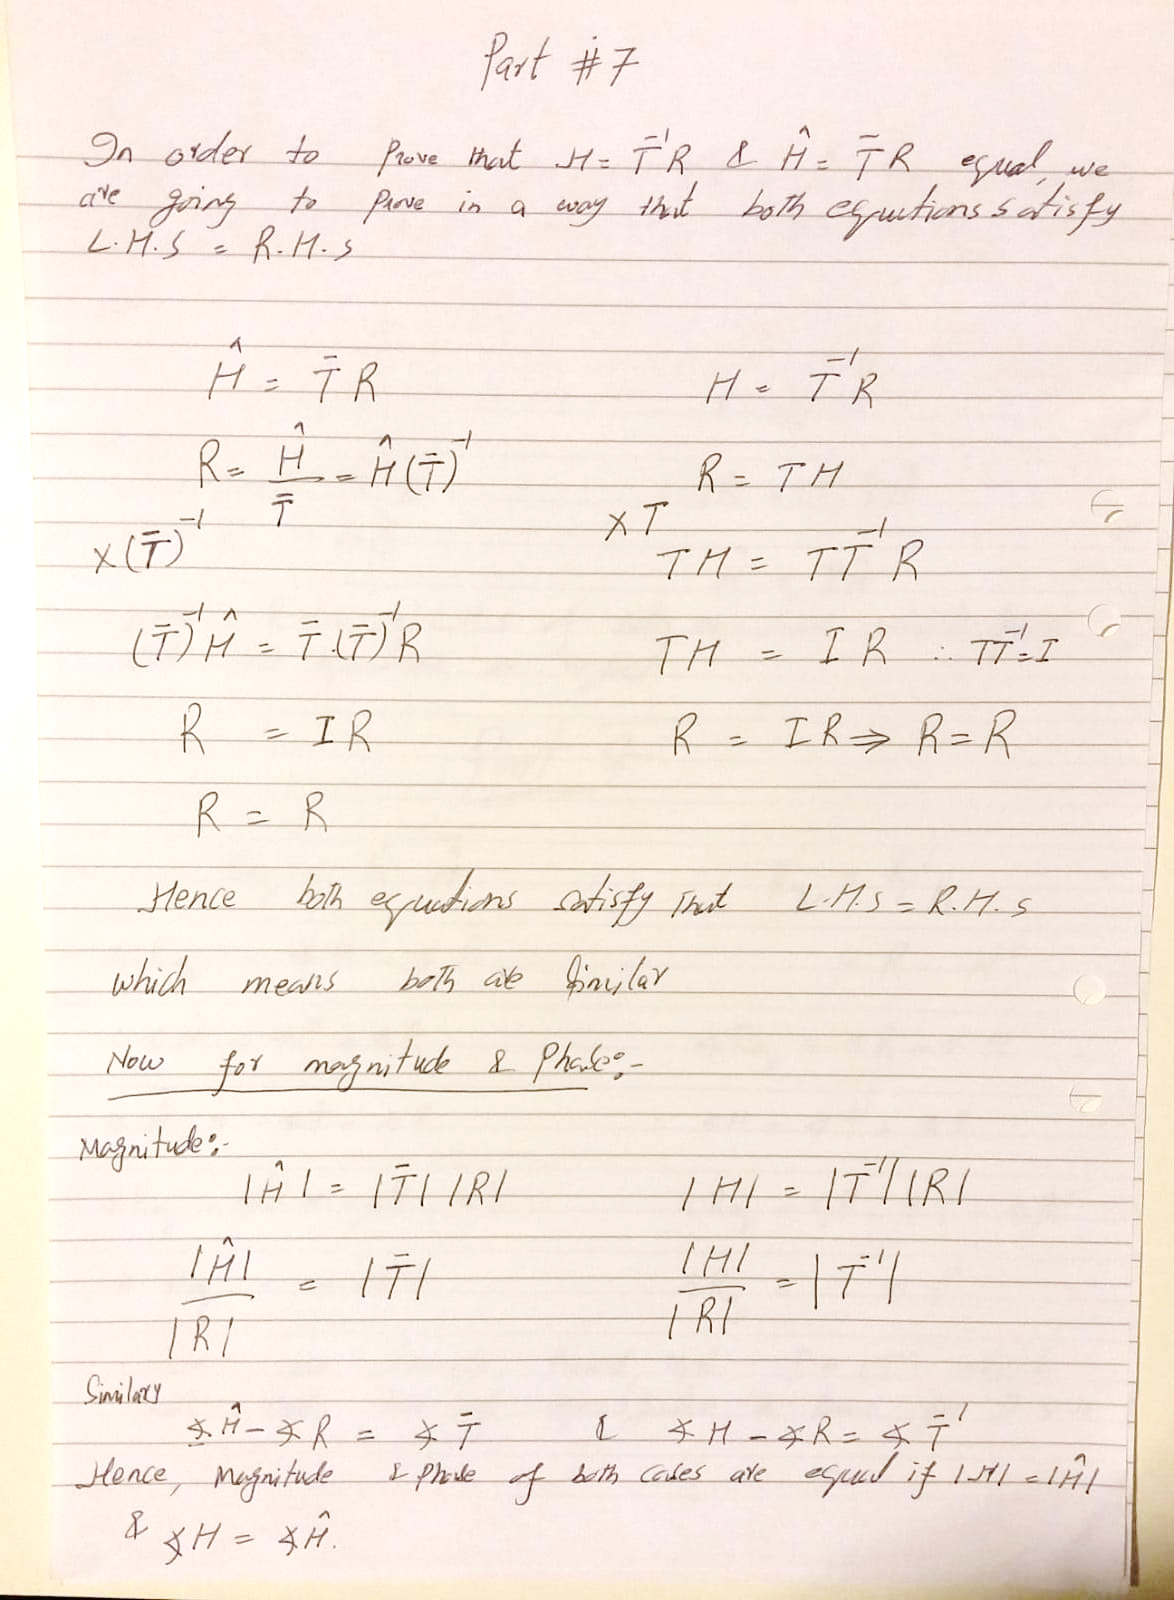 Part #7
In order to Prove that H = T⁻¹R & Ĥ = T̿ R equal, we
are going to Prove in a way that both equations satisfy
L.H.S = R.H.S
Ĥ = T̿ R H = T⁻¹R
R = Ĥ/T̿ = Ĥ(T̿)⁻¹ R = TH
×(T̿)⁻¹ ×T
TH = TT⁻¹R
(T̿)⁻¹Ĥ = T̿.(T̿)⁻¹R TH = IR ∴ TT⁻¹=I
R = IR R = IR ⇒ R=R
R = R
Hence both equations satisfy that L.H.S = R.H.S
which means both are Similar
Now for magnitude & Phase:-
Magnitude:-
|Ĥ| = |T̿| |R| |H| = |T⁻¹||R|
|Ĥ|/|R| = |T̿| |H|/|R| = |T⁻¹|
Similary
∡Ĥ - ∡R = ∡T̿ & ∡H - ∡R = ∡T⁻¹
Hence, Magnitude & Phase of both cases are equal if |H| = |Ĥ|
& ∡H = ∡Ĥ.